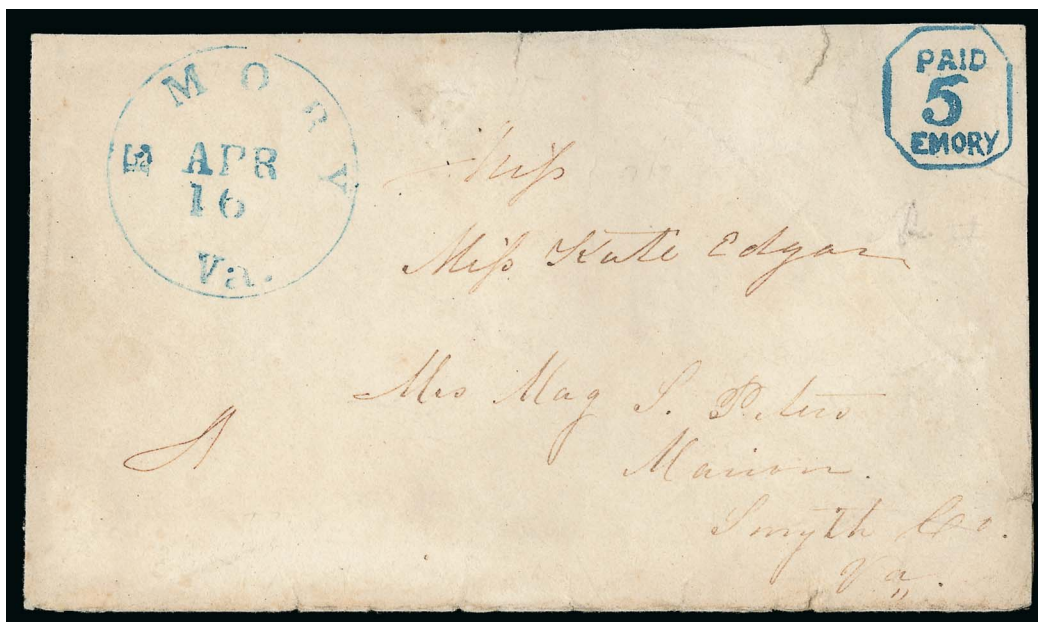 EMORY
APR
16
Va.
PAID
5
EMORY
Miss
Miss Kate Edgar
Mrs Mag S. Peters
Marion
Smyth Co.
Va,,